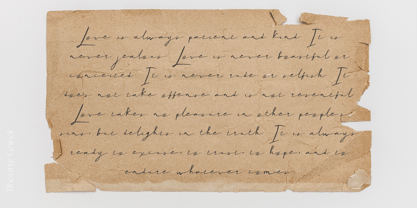 Love is always patient and kind It is
never jealous Love is never boastful or
conceited It is never rude or selfish It
does not take offense and is not resentful
Love takes no pleasure in other people's
sins but delights in the truth It is always
ready to excuse to trust to hope and to
endure whatever comes